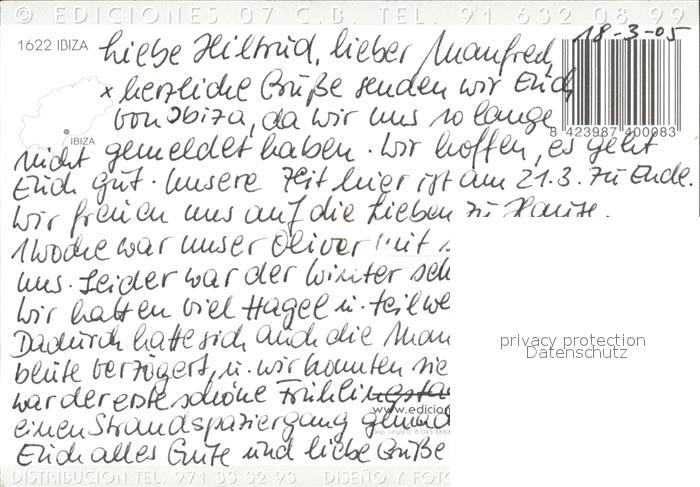 © EDICIONES 07 C.B. TEL. 91 632 08 99
18-3-05
1622 IBIZA
Liebe Hiltrud, lieber Manfred,
x herzliche Grüße senden wir Euch
von Ibiza, da wir uns so lange
IBIZA
8 423987 400083
nicht gemeldet haben. Wir hoffen, es geht
Euch gut. Unsere Zeit hier ist am 21.3. zu Ende.
Wir freuen uns auf die Lieben zu Hause.
1 Woche war unser Oliver mit
uns. Leider war der Winter
Wir hatten viel Hagel u.
Dadurch hatte sich auch die
blüte verzögert, u. wir konnten sie
war der erste schöne
www.edicion
einen Strandspaziergang
Euch alles Gute und liebe Grüße
privacy protection
Datenschutz
DISTRIBUCION TEL. 971 33 32 93 DISEÑO Y FOTO